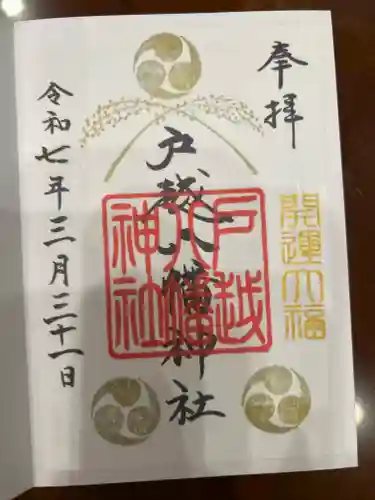 奉拝
開運大福
戸越八幡神社
戸越
八幡
神社
令和七年三月三十一日